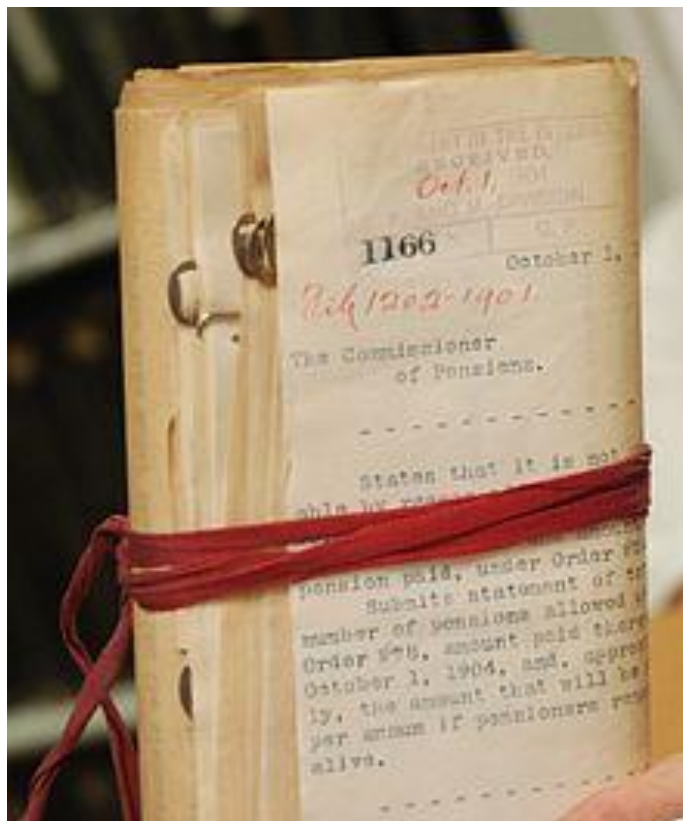 RECEIVED,
Oct. 1, 1904
1166
October 1,
File 1202-1901.
The Commissioner
of Pensions.
- - - - - - - - - - - -
States that it is not
able by
pension paid, under Order
Submits statement of
number of pensions allowed
Order #78, amount paid
October 1, 1904, and,
ly, the amount that will be
per annum if pensioners
alive.
- - - - - - - - - - - -